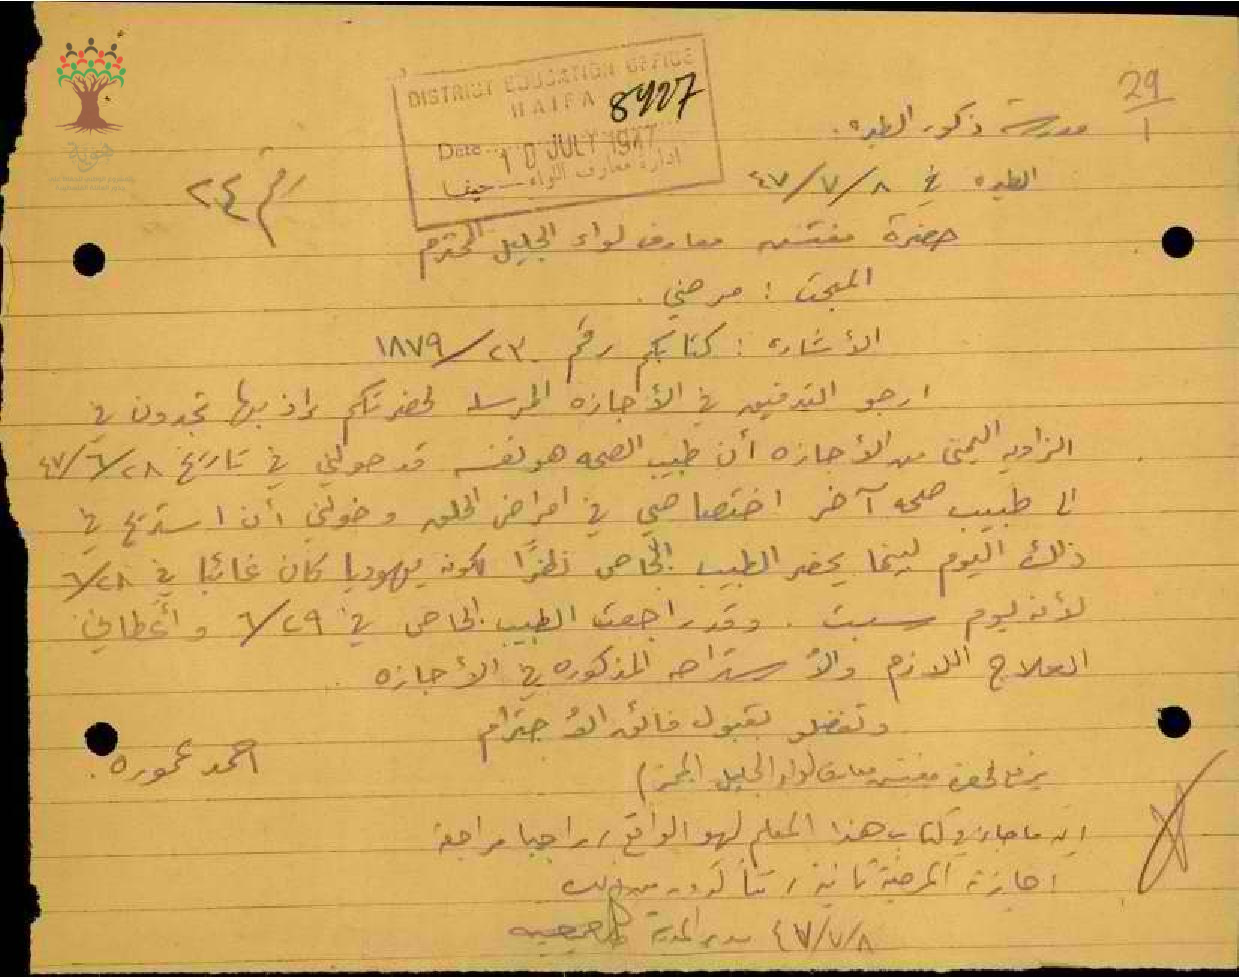 29
1
DISTRICT EDUCATION OFFICE
HAIFA
8427
Date... 10 JULY 1947
ادارة معارف اللواء — حيفا
هوية
مدرسة ذكور الطيره.
الطيره في ٨/٧/٤٧
رقم ٢٤
حضرة مفتش معارف لواء الجليل المحترم
المبحث : مرضي.
الأشاره : كتابكم رقم ٢٣/١٨٧٩
ارجو التدقيق في الأجازه المرسله لحضرتكم إذ بها تجدون في
الزاويه اليمنى من الأجازه أن طبيب الصحه هو نفسه قد حولني في تاريخ ٢٨/٦/٤٧
الى طبيب صحه آخر اختصاصي في امراض الحلق وخولني أن استريح في
ذلك اليوم لبينما يحضر الطبيب الخاص نظرًا لكونه يهوديا كان غائبا في ٢٨/٦
لأنه يوم سبت. وقد راجعت الطبيب الخاص في ٢٩/٦ وأعطاني
العلاج اللازم والأستراحه المذكوره في الأجازه
وتفضلو بقبول فائق الأحترام
احمد عموره.
حضرة مفتش معارف لواء الجليل المحترم
إن ما جاء في كتاب هذا المعلم لهو الواقع، راجيا مراجعة
اجازته المرضية ثانية، تتأكدون من ذلك
٨/٧/٤٧ مدير المدرسة